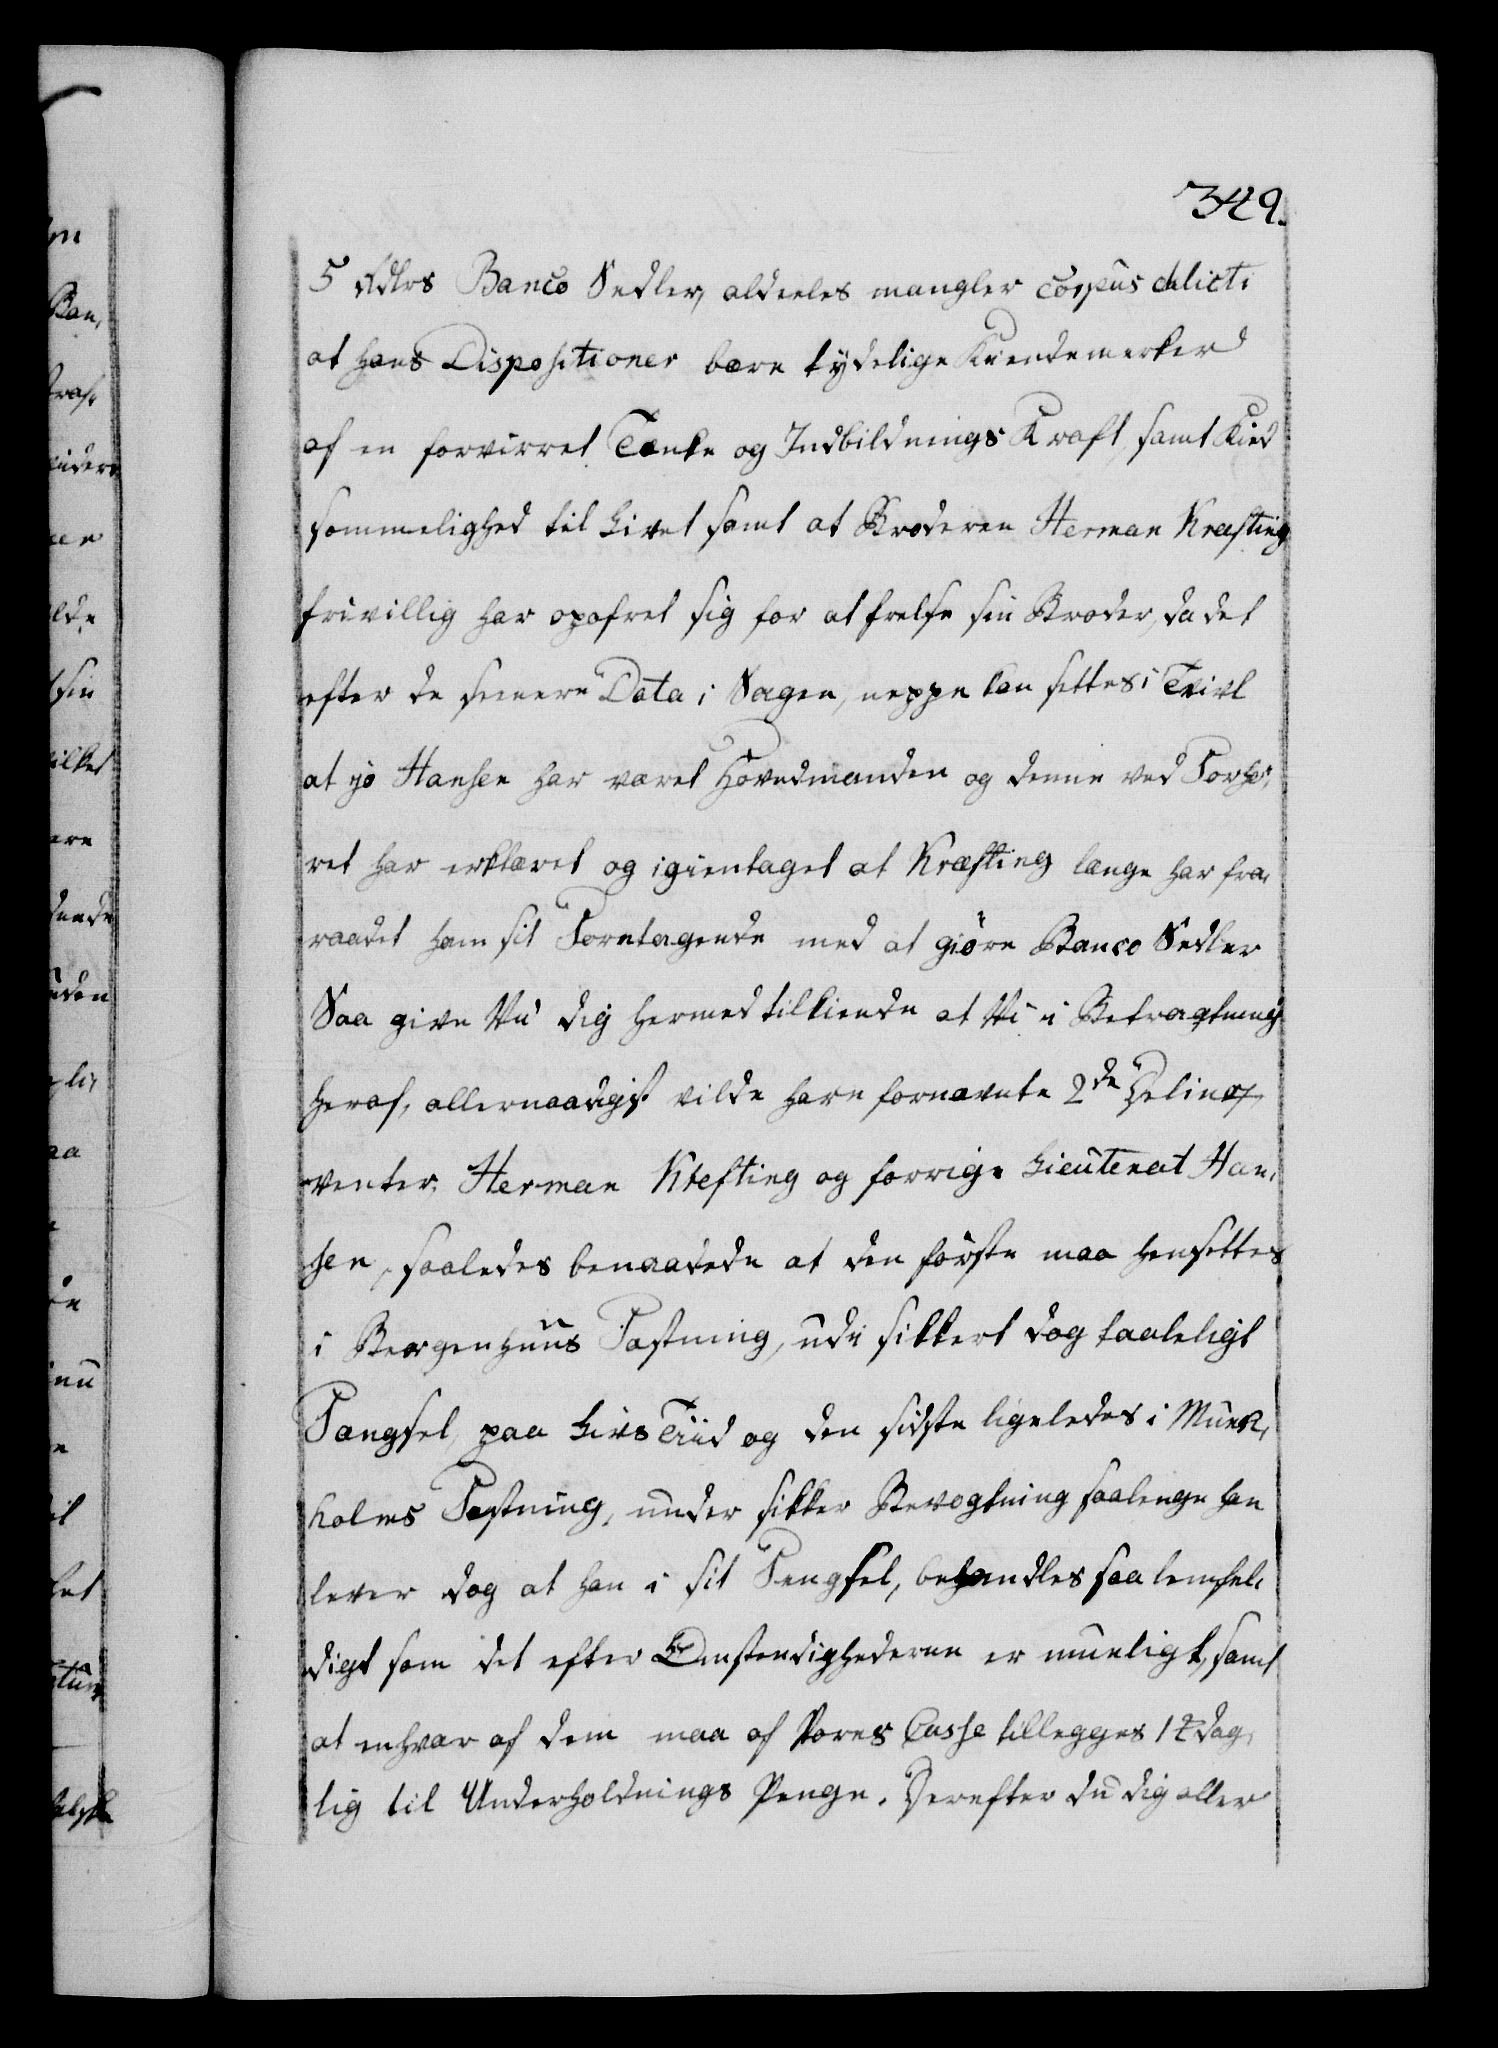 349.
5 Rdlrs Banco Sedler, aldeeles mangler corpus delicti
at hans Dispositioner bære tydelige Kiendemerker
af en forvirret Tænke og Indbildnings Kraft, samt Kied
sommelighed til Livet samt at Broderen Herman Krefting
frivillig har opofret sig for at frelse sin Broder, da det
efter de senere Data i Sagen, neppe kan settes i Tvivl
at jo Hansen har været Hovedmanden og denne ved Forhø,
ret har erklæret og igientaget at Kræfting længe har fra,
raadet ham sit Foretagende med at giöre Banco Sedler
Saa give Vii dig hermed tilkiende at Vi i Betragtning
heraf, allernaadigst vilde have fornævnte 2de Delinqv
venter, Herman Krefting og forrige Lieutenat Han,
sen, saaledes benaadede at den förste maa hensettes
i Bergenhuus Fæstning, udi sikkert dog taaleligt
Fængsel, paa Livs Tiid og den sidste ligeledes i Munk,
holms Fæstning, under sikker Bevogtning saalenge han
lever dog at han i sit Fengsel, behandles saa lemfel,
digt som det efter Omstendighederne er mueligt, samt
at enhver af dem maa af Vores Casse tillegges 1 dag,
lig til Underholdnings Penge. Derefter du dig aller